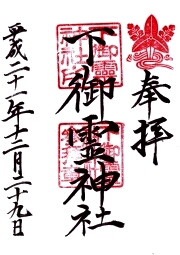 奉拝
下御霊神社
平成二十一年十二月二十九日